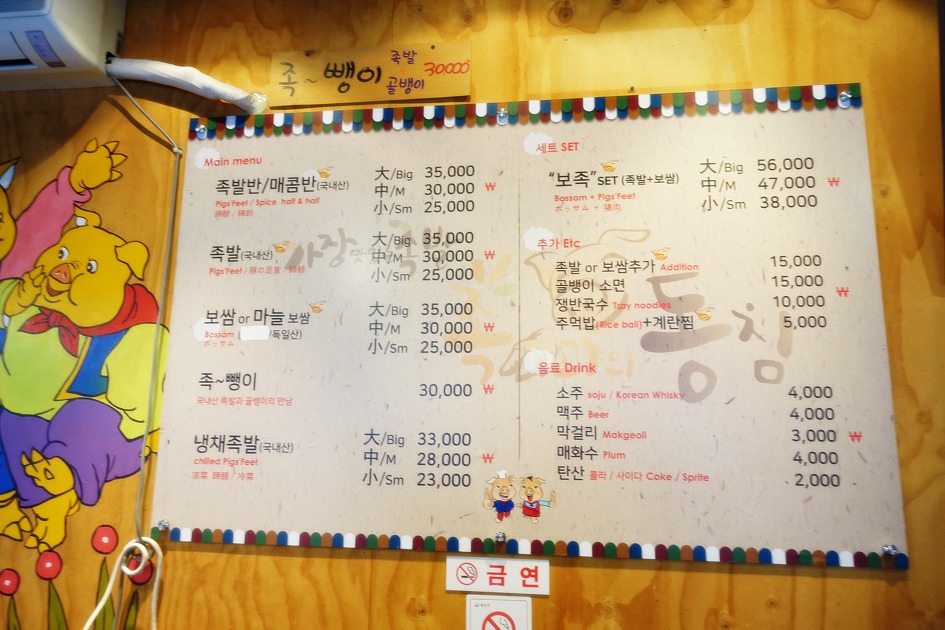 족~뺑이 족발 30,000
골뱅이
Main menu
족발반/매콤반(국내산) 大/Big 35,000
Pigs'Feet / Spice half & half 中/M 30,000 ₩
小/Sm 25,000
족발(국내산) 大/Big 35,000
Pigs'Feet / 中/M 30,000 ₩
小/Sm 25,000
보쌈 or 마늘 보쌈 大/Big 35,000
Bossam ( /독일산) 中/M 30,000 ₩
ポッサム 小/Sm 25,000
족~뺑이 30,000 ₩
국내산 족발과 골뱅이의 만남
냉채족발(국내산) 大/Big 33,000
chilled Pigs'Feet 中/M 28,000 ₩
小/Sm 23,000
세트 SET
"보족" SET (족발+보쌈) 大/Big 56,000
Bossam + Pigs'Feet 中/M 47,000 ₩
ポッサム + 猪肉 小/Sm 38,000
추가 Etc
족발 or 보쌈추가 Addition 15,000
골뱅이 소면 15,000 ₩
쟁반국수 Tray noodles 10,000
주먹밥(Rice ball)+계란찜 5,000
음료 Drink
소주 soju / Korean Whisky 4,000
맥주 Beer 4,000
막걸리 Makgeolli 3,000 ₩
매화수 Plum 4,000
탄산 콜라 / 사이다 Coke / Sprite 2,000
금연